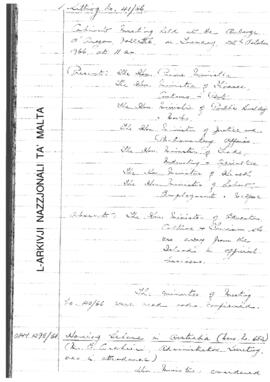 Sitting No. 41/66
Cabinet Meeting held at the Auberge
d'Aragon Valletta, on Tuesday
1966, at 11 a.m.
Present: The Hon. Prime Minister
The Hon. Minister of Finance,
Customs & Port
The Hon. Minister of Public Building
& Works
The Hon. Minister of Justice and
Parliamentary Affairs
The Hon. Minister of Trade,
Industry & Agriculture
The Hon. Minister of Health
The Hon. Minister of Labour,
Employment & Welfare
Absent: The Hon. Minister of Education,
Culture & Tourism who
was away from the
Island on official
business.
The minutes of Meeting
No. 40/66 were read and confirmed.
Housing Scheme in Australia
attended)
Hon. Ministers considered
L-ARKIVJI NAZZJONALI TA' MALTA